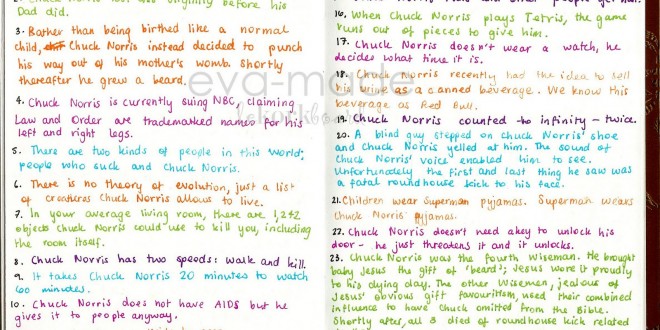 Dad did.
3. Rather than being birthed like a normal
child, Chuck Norris instead decided to punch
his way out of his mother's womb. Shortly
thereafter he grew a beard.
4. Chuck Norris is currently suing NBC, claiming
Law and Order are trademarked names for his
left and right legs.
5. There are two kinds of people in this world;
people who suck and Chuck Norris.
6. There is no theory of evolution, just a list
of creatures Chuck Norris allows to live.
7. In your average living room, there are 1,242
objects Chuck Norris could use to kill you, including
the room itself.
8. Chuck Norris has two speeds: walk and kill.
9. It takes Chuck Norris 20 minutes to watch
60 minutes.
10. Chuck Norris does not have AIDS but he
gives it to people anyway.
16. When Chuck Norris plays Tetris, the game
runs out of pieces to give him.
17. Chuck Norris doesn't wear a watch, he
decides what time it is.
18. Chuck Norris recently had the idea to sell
his urine as a canned beverage. We know this
beverage as Red Bull.
19. Chuck Norris counted to infinity - twice.
20. A blind guy stepped on Chuck Norris' shoe
and Chuck Norris yelled at him. The sound of
Chuck Norris' voice enabled him to see.
Unfortunately the first and last thing he saw was
a fatal roundhouse kick to his face.
21. Children wear Superman pyjamas. Superman wears
Chuck Norris pyjamas.
22. Chuck Norris doesn't need a key to unlock his
door - he just threatens it and it unlocks.
23. Chuck Norris was the fourth Wiseman. He brought
baby Jesus the gift of 'beard'; Jesus wore it proudly
to his dying day. The other Wisemen, jealous of
Jesus' obvious gift favouritism, used their combined
influence to have Chuck omitted from the Bible.
Shortly after, all 3 died of roundhouse kick related
eva-made